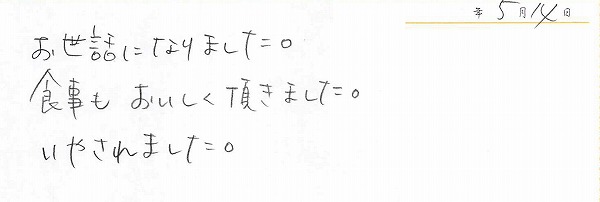 年 5月14日
お世話になりました。
食事も おいしく頂きました。
いやされました。